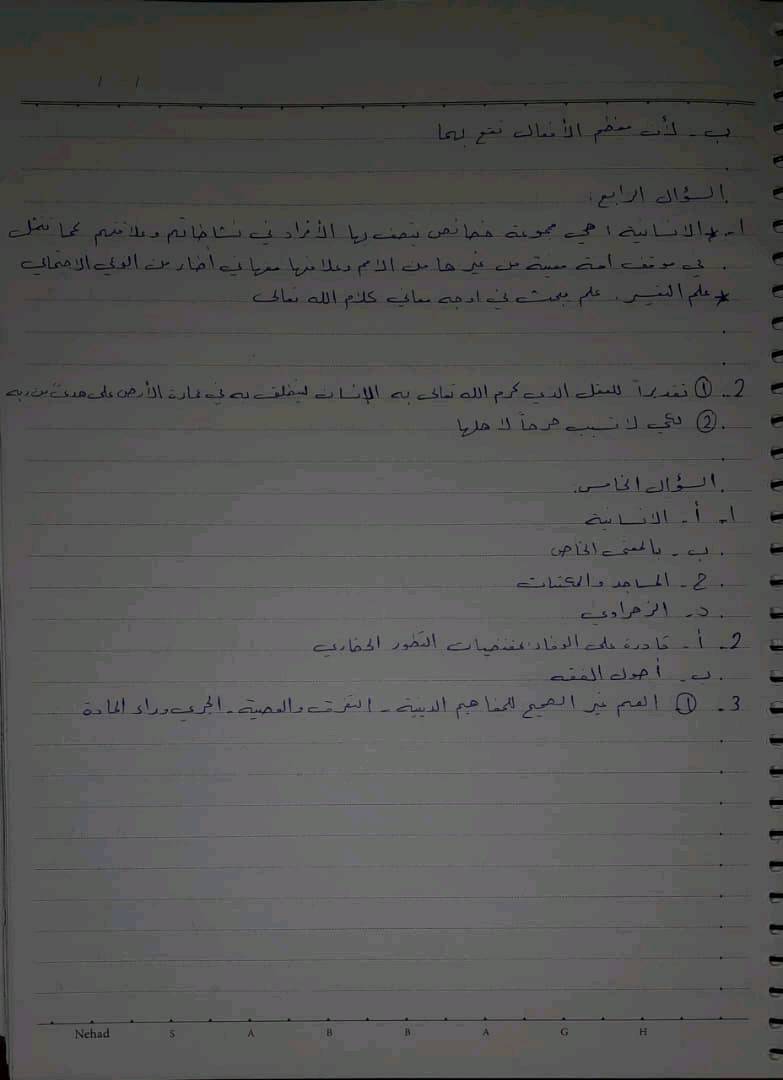 / /
ب - لأن معظم الأفعال تقع بهما
السؤال الرابع:
1- * الانسانية : هي مجموعة خصائص يتصف بها الأفراد في نشاطاتهم وعلاقتهم كما تتمثل
في موقف أمة معينة من غيرها من الأمم وعلاقتها معها في إطار من الوعي الاجتماعي
* علم التفسير : علم يبحث في أوجه معاني كلام الله تعالى
2- ① تقديراً للعقل الذي كرم الله تعالى به الإنسان لينطلق به في عمارة الأرض على هدىً من ربه
② لكي لا تسبب حرجاً لاهلها
السؤال الخامس:
1- أ- الانسانية
ب - بالمعنى الخاص
ج - المساجد والمكتبات
د - الزهراوي
2- أ- قادرة على الوفاء بمقتضيات التطور الحضاري
ب - أصول الفقه
3- ① الفهم غير الصحيح للمفاهيم الدينية - التفرق والعصبية - الجري وراء المادة
Nehad S A B B A G H